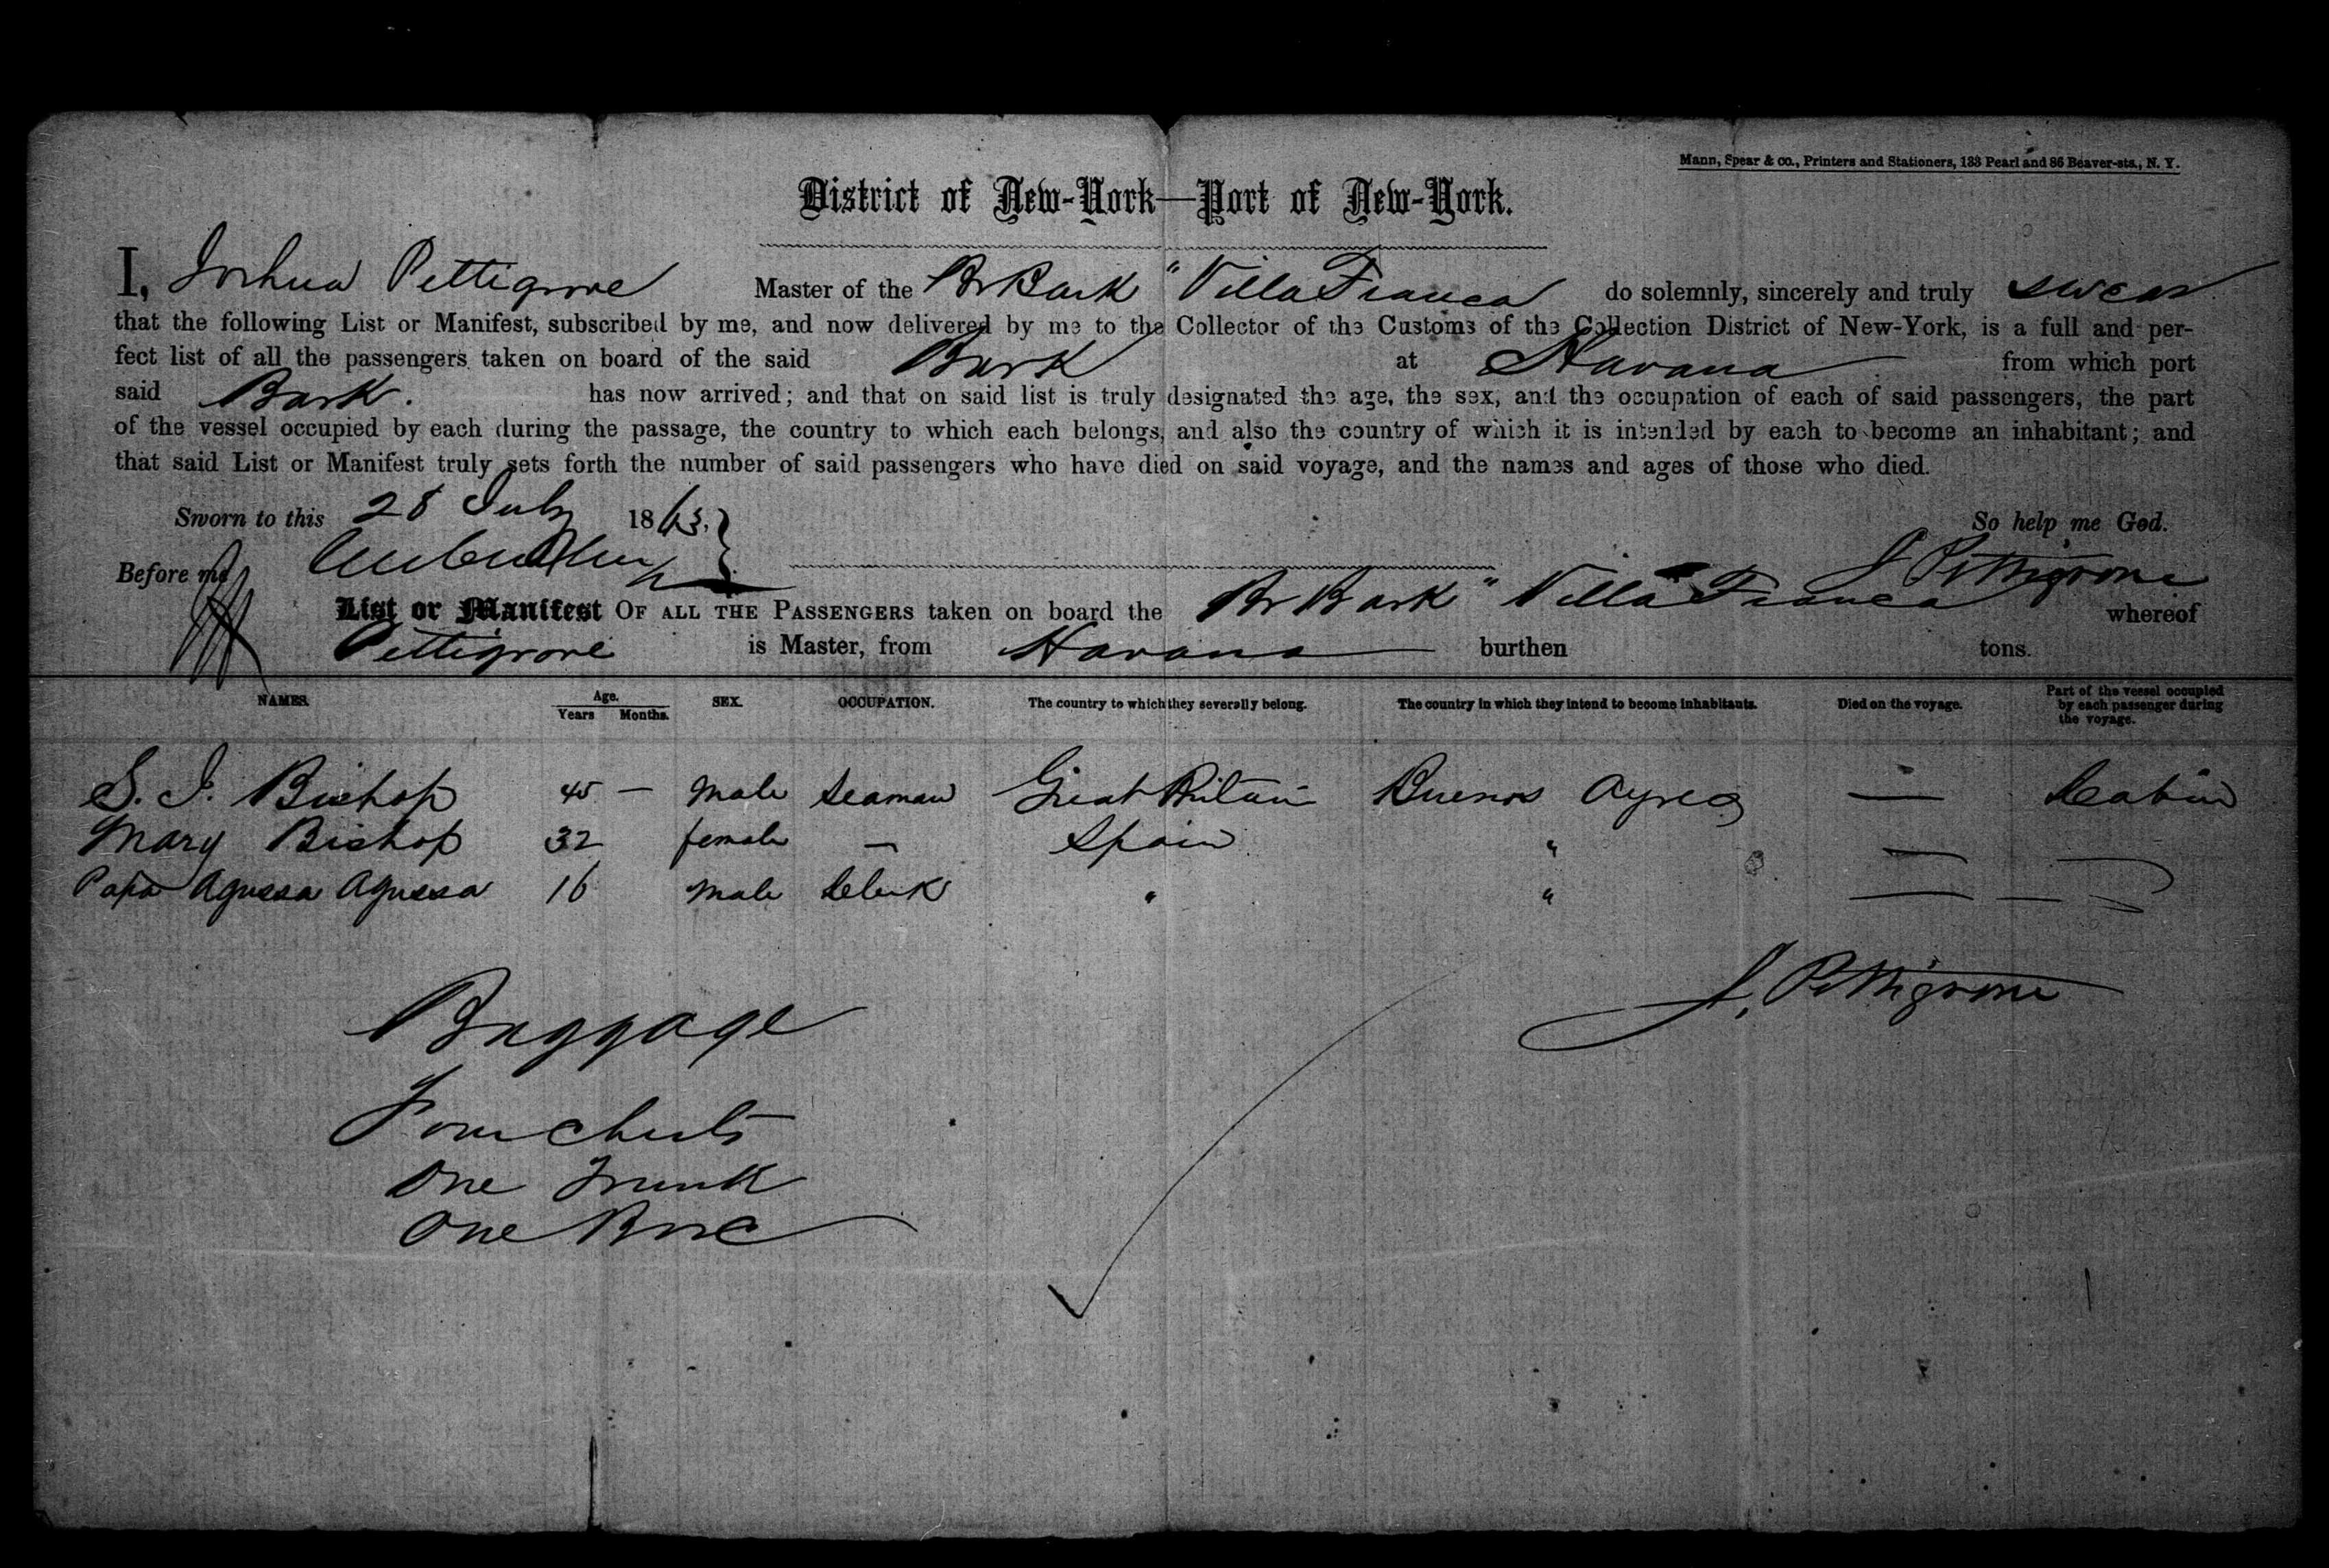 Mann, Spear & co., Printers and Stationers, 133 Pearl and 86 Beaver-sts., N. Y.
District of New-York—Port of New-York.
I, Joshua Pettigrove Master of the Br Bark "Villa Franca do solemnly, sincerely and truly swear
that the following List or Manifest, subscribed by me, and now delivered by me to the Collector of the Customs of the Collection District of New-York, is a full and per-
fect list of all the passengers taken on board of the said Bark at Havana from which port
said Bark. has now arrived; and that on said list is truly designated the age, the sex, and the occupation of each of said passengers, the part
of the vessel occupied by each during the passage, the country to which each belongs, and also the country of which it is intended by each to become an inhabitant; and
that said List or Manifest truly sets forth the number of said passengers who have died on said voyage, and the names and ages of those who died.
Sworn to this 28 July 1863. So help me God.
Before me J Pettigrove
List or Manifest OF ALL THE PASSENGERS taken on board the Br Bark "Villa Franca whereof
Pettigrove is Master, from Havana burthen tons.
NAMES. Age. Years Months. SEX. OCCUPATION. The country to which they severally belong. The country in which they intend to become inhabitants. Died on the voyage. Part of the vessel occupied by each passenger during the voyage.
S. J. Bishop 45 — Male Seaman Great Britain Buenos Ayres — Cabin
Mary Bishop 32 female — Spain " —
Papa Agussa Agussa 16 Male Clerk " " —
J. Pettigrove
Baggage
Four chests
One Trunk
One Box